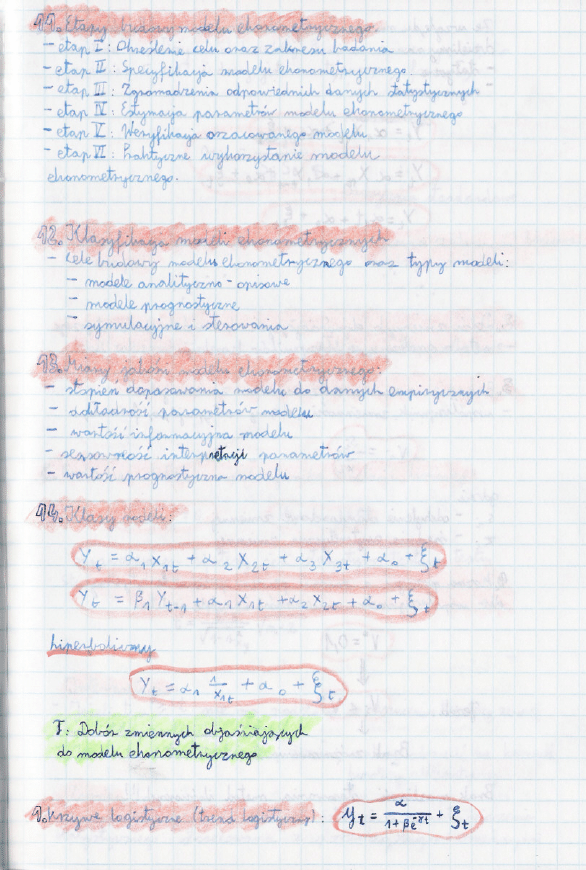 11. Etapy budowy modelu ekonometrycznego:
- etap I: Określenie celu oraz zakresu badania
- etap II: Specyfikacja modelu ekonometrycznego
- etap III: Zgromadzenia odpowiednich danych statystycznych -
- etap IV: Estymacja parametrów modelu ekonometrycznego
- etap V: Weryfikacja oszacowanego modelu
- etap VI: Praktyczne wykorzystanie modelu
ekonometrycznego.
12. Klasyfikacja modeli ekonometrycznych
- Cele budowy modelu ekonometrycznego oraz typy modeli:
- modele analityczno-opisowe
- modele prognostyczne
- symulacyjne i sterowania
13. Miary jakości modelu ekonometrycznego:
- stopień dopasowania modelu do danych empirycznych
- dokładność parametrów modelu
- wartość informacyjna modelu
- sensowność interpretacji parametrów
- wartość prognostyczna modelu
14. Klasy modeli:
Y_t = α_1 X_1t + α_2 X_2t + α_3 X_3t + α_0 + ξ_t
Y_t = β_1 Y_t-1 + α_1 X_1t + α_2 X_2t + α_0 + ξ_t
hiperboliczny
Y_t = α_1 1/X_1t + α_0 + ξ_t
T: Dobór zmiennych objaśniających
do modelu ekonometrycznego
1. Krzywe logistyczne (trend logistyczny): y_t = α/(1+βe^-γt) + ξ_t